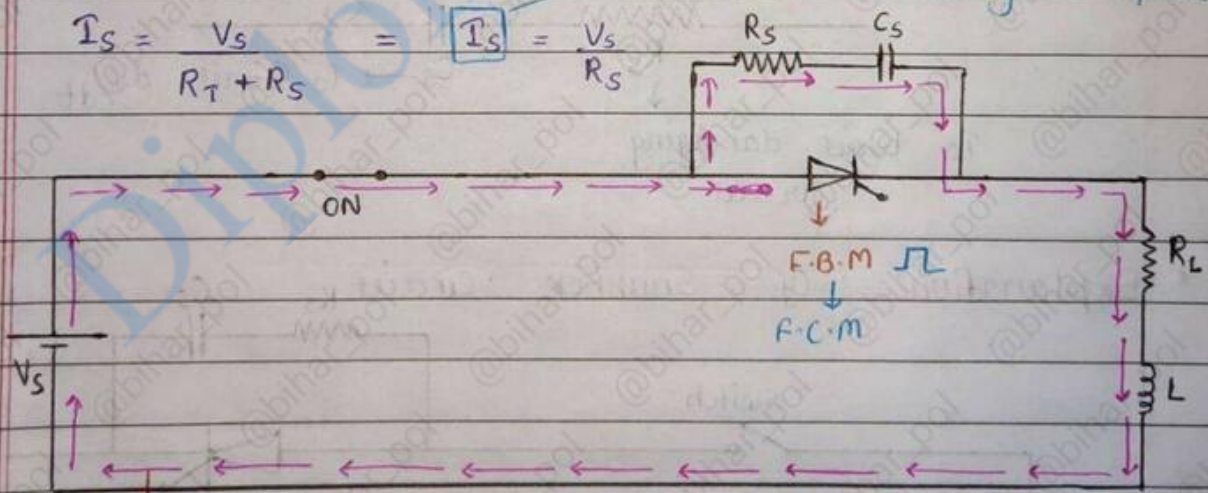 I_S = V_S / (R_T + R_S) = I_S = V_S / R_S
R_S C_S
ON
F.B.M
F.C.M
R_L
V_S
L
Diplo
@bihar_pol